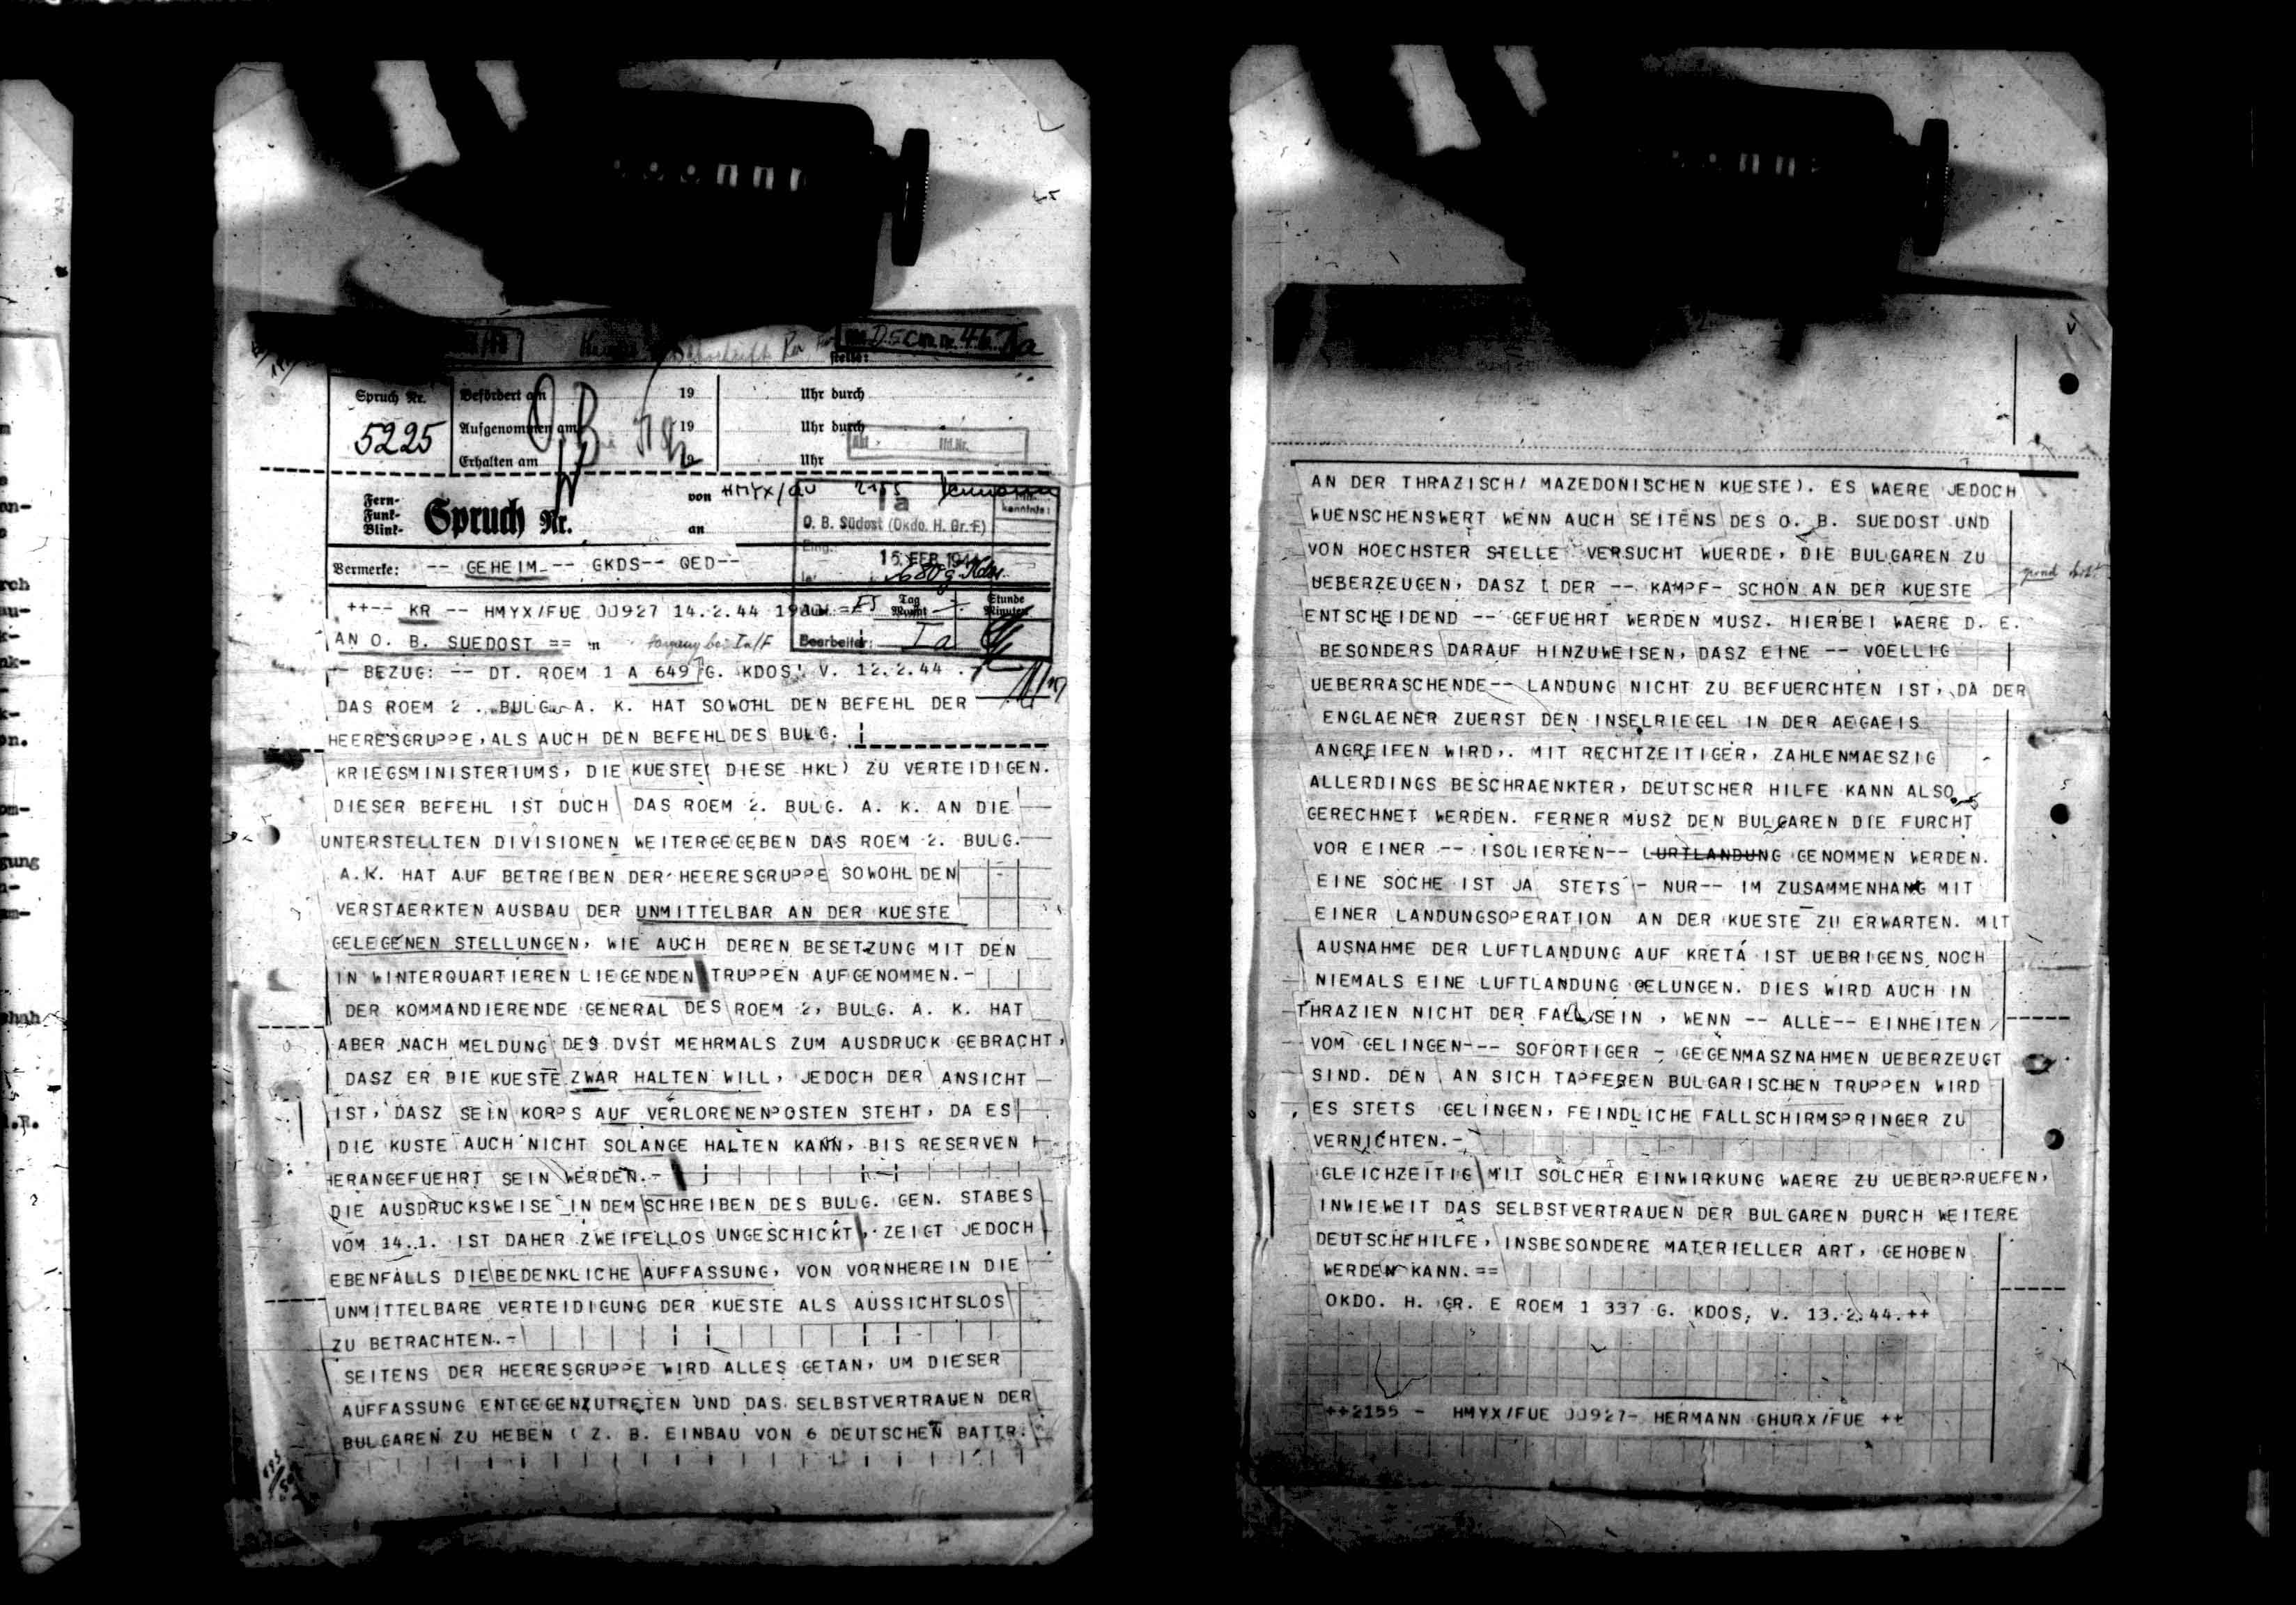 Spruch Nr.
5225
Befördert am 19 Uhr durch
Aufgenommen am 19 Uhr durch
Erhalten am 19 Uhr
Fern-
Funk-
Blink-
Spruch Nr.
von HMYX/ 2155
an
Ia
O. B. Südost (Okdo. H. Gr. F)
15. FEB. 1944
Vermerke: -- GEHEIM -- GKDS-- QED--
Tag
Monat
Stunde
Minuten
Bearbeiter: Ia
++-- KR -- HMYX/FUE 00927 14.2.44
AN O. B. SUEDOST ==
BEZUG: -- DT. ROEM 1 A 649 G. KDOS V. 12.2.44 .
DAS ROEM 2 . BULG. A. K. HAT SOWOHL DEN BEFEHL DER
HEERESGRUPPE, ALS AUCH DEN BEFEHL DES BULG.
KRIEGSMINISTERIUMS, DIE KUESTE( DIESE HKL) ZU VERTEIDIGEN.
DIESER BEFEHL IST DUCH DAS ROEM 2. BULG. A. K. AN DIE
UNTERSTELLTEN DIVISIONEN WEITERGEGEBEN DAS ROEM 2. BULG.
A.K. HAT AUF BETREIBEN DER HEERESGRUPPE SOWOHL DEN
VERSTAERKTEN AUSBAU DER UNMITTELBAR AN DER KUESTE
GELEGENEN STELLUNGEN, WIE AUCH DEREN BESETZUNG MIT DEN
IN WINTERQUARTIEREN LIEGENDEN TRUPPEN AUFGENOMMEN.-
DER KOMMANDIERENDE GENERAL DES ROEM 2, BULG. A. K. HAT
ABER NACH MELDUNG DES DVST MEHRMALS ZUM AUSDRUCK GEBRACHT,
DASZ ER DIE KUESTE ZWAR HALTEN WILL, JEDOCH DER ANSICHT
IST, DASZ SEIN KORPS AUF VERLORENENPOSTEN STEHT, DA ES
DIE KUSTE AUCH NICHT SOLANGE HALTEN KANN, BIS RESERVEN
HERANGEFUEHRT SEIN WERDEN.-
DIE AUSDRUCKSWEISE IN DEM SCHREIBEN DES BULG. GEN. STABES
VOM 14.1. IST DAHER ZWEIFELLOS UNGESCHICKT, ZEIGT JEDOCH
EBENFALLS DIE BEDENKLICHE AUFFASSUNG, VON VORNHEREIN DIE
UNMITTELBARE VERTEIDIGUNG DER KUESTE ALS AUSSICHTSLOS
ZU BETRACHTEN.-
SEITENS DER HEERESGRUPPE WIRD ALLES GETAN, UM DIESER
AUFFASSUNG ENTGEGENZUTRETEN UND DAS SELBSTVERTRAUEN DER
BULGAREN ZU HEBEN ( Z. B. EINBAU VON 6 DEUTSCHEN BATTR.
AN DER THRAZISCH/ MAZEDONISCHEN KUESTE). ES WAERE JEDOCH
WUENSCHENSWERT WENN AUCH SEITENS DES O. B. SUEDOST UND
VON HOECHSTER STELLE VERSUCHT WUERDE, DIE BULGAREN ZU
UEBERZEUGEN, DASZ DER -- KAMPF- SCHON AN DER KUESTE
ENTSCHEIDEND -- GEFUEHRT WERDEN MUSZ. HIERBEI WAERE D. E.
BESONDERS DARAUF HINZUWEISEN, DASZ EINE -- VOELLIG
UEBERRASCHENDE-- LANDUNG NICHT ZU BEFUERCHTEN IST, DA DER
ENGLAENER ZUERST DEN INSELRIEGEL IN DER AEGAEIS
ANGREIFEN WIRD,. MIT RECHTZEITIGER, ZAHLENMAESZIG
ALLERDINGS BESCHRAENKTER, DEUTSCHER HILFE KANN ALSO
GERECHNET WERDEN. FERNER MUSZ DEN BULGAREN DIE FURCHT
VOR EINER -- ISOLIERTEN-- LURTLANDUNG GENOMMEN WERDEN.
EINE SOCHE IST JA STETS - NUR-- IM ZUSAMMENHANG MIT
EINER LANDUNGSOPERATION AN DER KUESTE ZU ERWARTEN. MIT
AUSNAHME DER LUFTLANDUNG AUF KRETA IST UEBRIGENS NOCH
NIEMALS EINE LUFTLANDUNG GELUNGEN. DIES WIRD AUCH IN
THRAZIEN NICHT DER FALL SEIN , WENN -- ALLE-- EINHEITEN
VOM GELINGEN--- SOFORTIGER - GEGENMASZNAHMEN UEBERZEUGT
SIND. DEN AN SICH TAPFEREN BULGARISCHEN TRUPPEN WIRD
ES STETS GELINGEN, FEINDLICHE FALLSCHIRMSPRINGER ZU
VERNICHTEN.-
GLEICHZEITIG MIT SOLCHER EINWIRKUNG WAERE ZU UEBERPRUEFEN,
INWIEWEIT DAS SELBSTVERTRAUEN DER BULGAREN DURCH WEITERE
DEUTSCHEHILFE, INSBESONDERE MATERIELLER ART, GEHOBEN
WERDEN KANN.==
OKDO. H. GR. E ROEM 1 337 G. KDOS, V. 13.2.44.++
++2155 - HMYX/FUE 00927- HERMANN GHURX/FUE ++